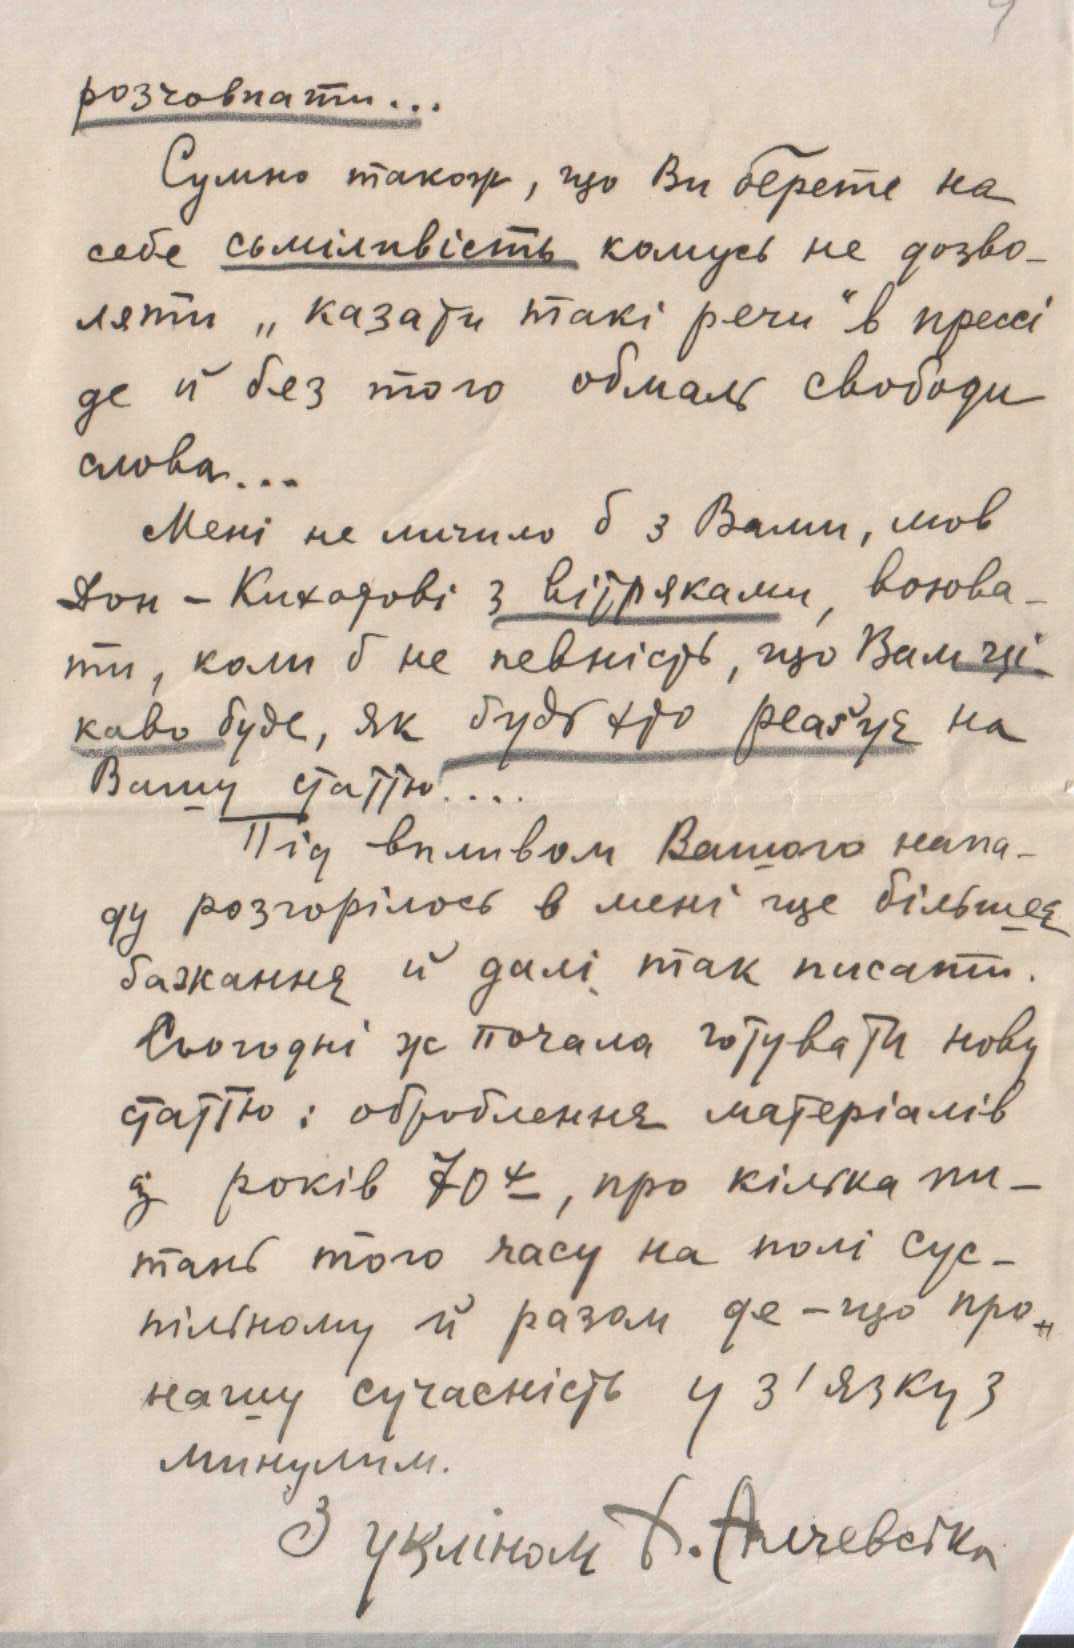 розчовпати...
Сумно також, що Ви берете на
себе сьміливість комусь не дозво-
ляти „казати такі речи“ в прессі
де й без того обмаль свободи
слова...
Мені не личило б з Вами, мов
Дон-Кихотові з вітряками, воюва-
ти, коли б не певність, що Вам ці
каво буде, як будь хто реагує на
Вашу статтю....
Під впливом Вашого напа-
ду розгорілось в мені ще більшее
бажання й далі так писати.
Сьогодні ж почала готувати нову
статтю: оброблення матеріалів
з років 70х, про кілька пи-
тань того часу на полі сус-
пільному й разом де-що про
нашу сучасність у з'язку з
минулим.
З укліном Х. Алчевська